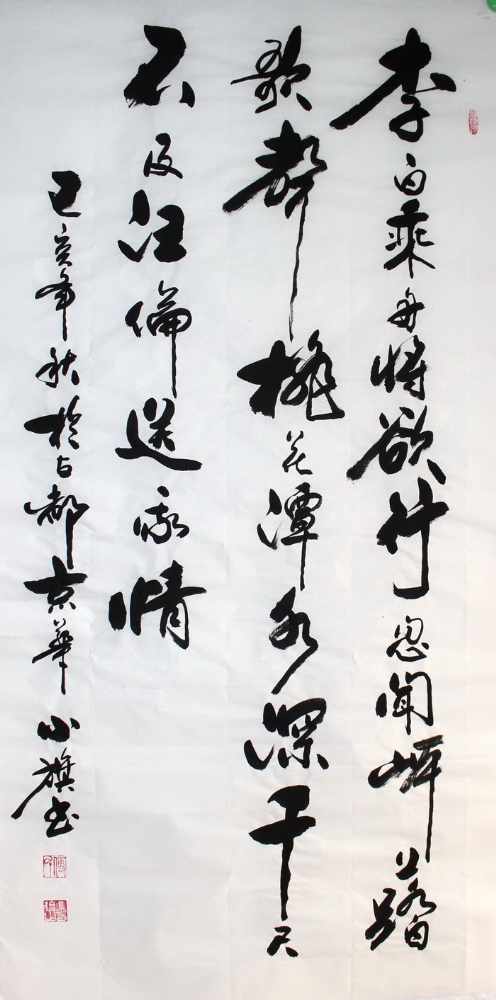 李白乘舟将欲行忽聞岸上踏
歌聲桃花潭水深千尺
不及汪倫送我情
己亥年秋於古都京華小旗书